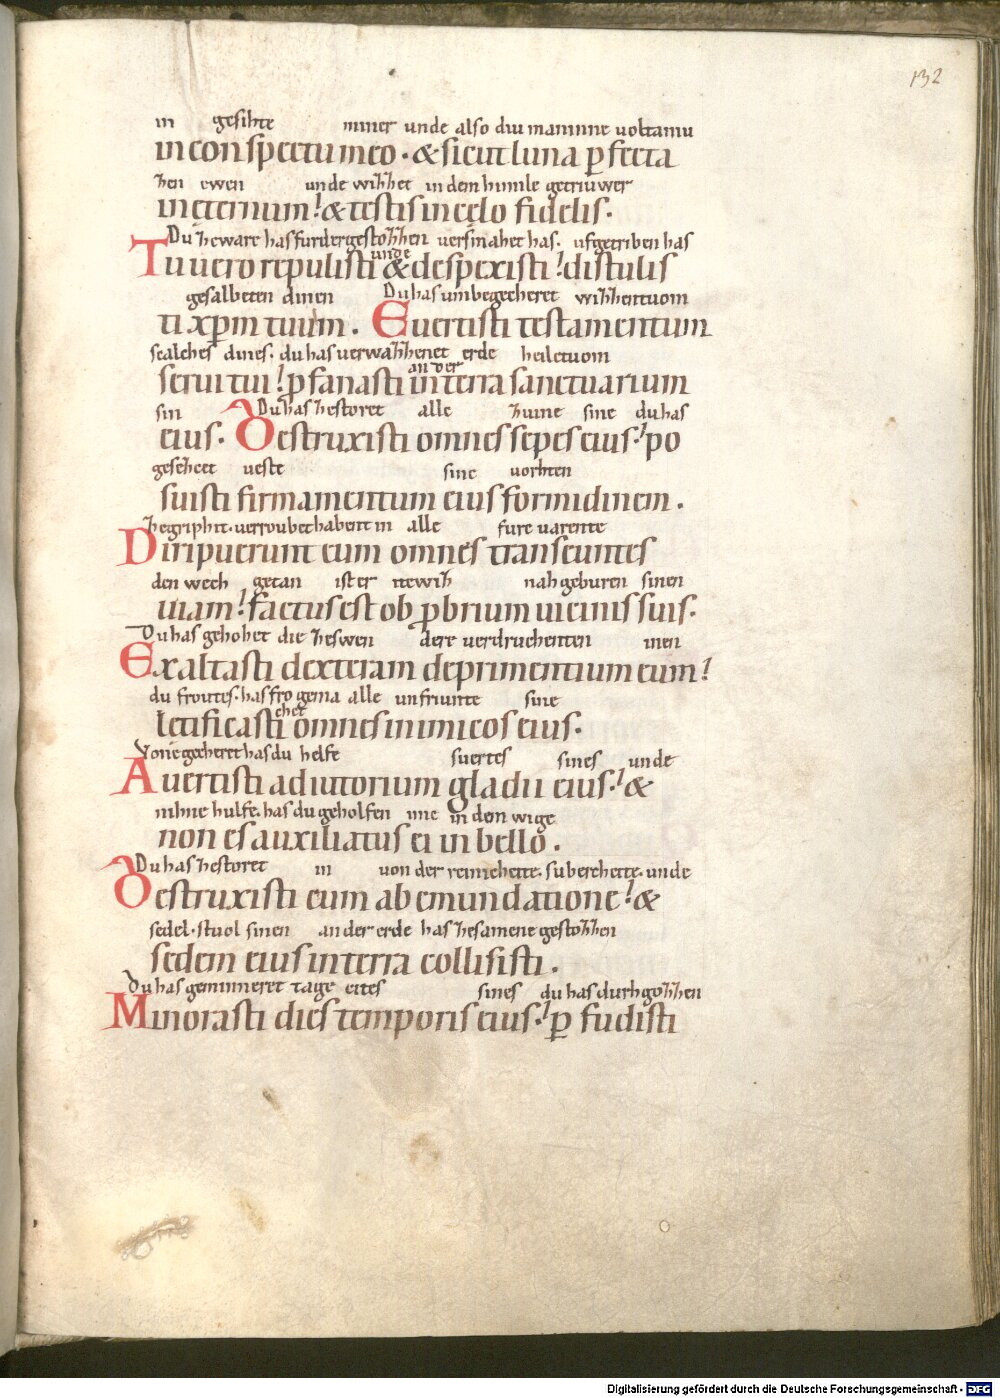 132
in gesihte miner unde also diu maninne uoltaniu
in conspectu meo · & sicut luna pfecta
zen ewen unde wizzet in dem himile getriuwer
in eternum! & testis in celo fidelis.
Du zeware has furdergestozzen uersmahet has. ufgetriben has
unde
Tu uero repulisti & despexisti! distulis
gesalbeten dinen Du has umbegecheret wizzentuom
ti xpm tuum . Euertisti testamentum
scalches dines. du has uerwazzenet erde heiletuom
an der
serui tui! pfanasti in terra sanctuarium
sin Du has zestoret alle zuine sine du has
eius. Destruxisti omnes sepes eius! po
gesezcet ueste sine uorhten
suisti firmamentum eius formidinem .
Zegriphit. verroubet habent in alle fure uarente
Diripuerunt eum omnes transeuntes
den wech getan ist er itewiz nahgeburen sinen
uiam! factus est obpbrium uicinis suis.
Du has gehohet die zeswen dere verdruchenten inen
Exaltasti dexteram deprimentium eum!
du froutes. has frogema alle unfriunte sine
chet
letificasti omnes inimicos eius.
Vone gecheret has du helfe suertes sines unde
Auertisti adiutorium gladii eius! &
niht ne hulfe. has du geholfen ime in dem wige
non es auxiliatus ei in bello .
Du has zestoret in von der reinechette. suberchette. unde
Destruxisti eum ab emundatione! &
sedel. stuol sinen an der erde has zesamene gestozzen
sedem eius in terra collisisti .
Du has geminneret tage cites sines du has durhgozzen
Minorasti dies temporis eius! pfudisti
Digitalisierung gefördert durch die Deutsche Forschungsgemeinschaft - DFG